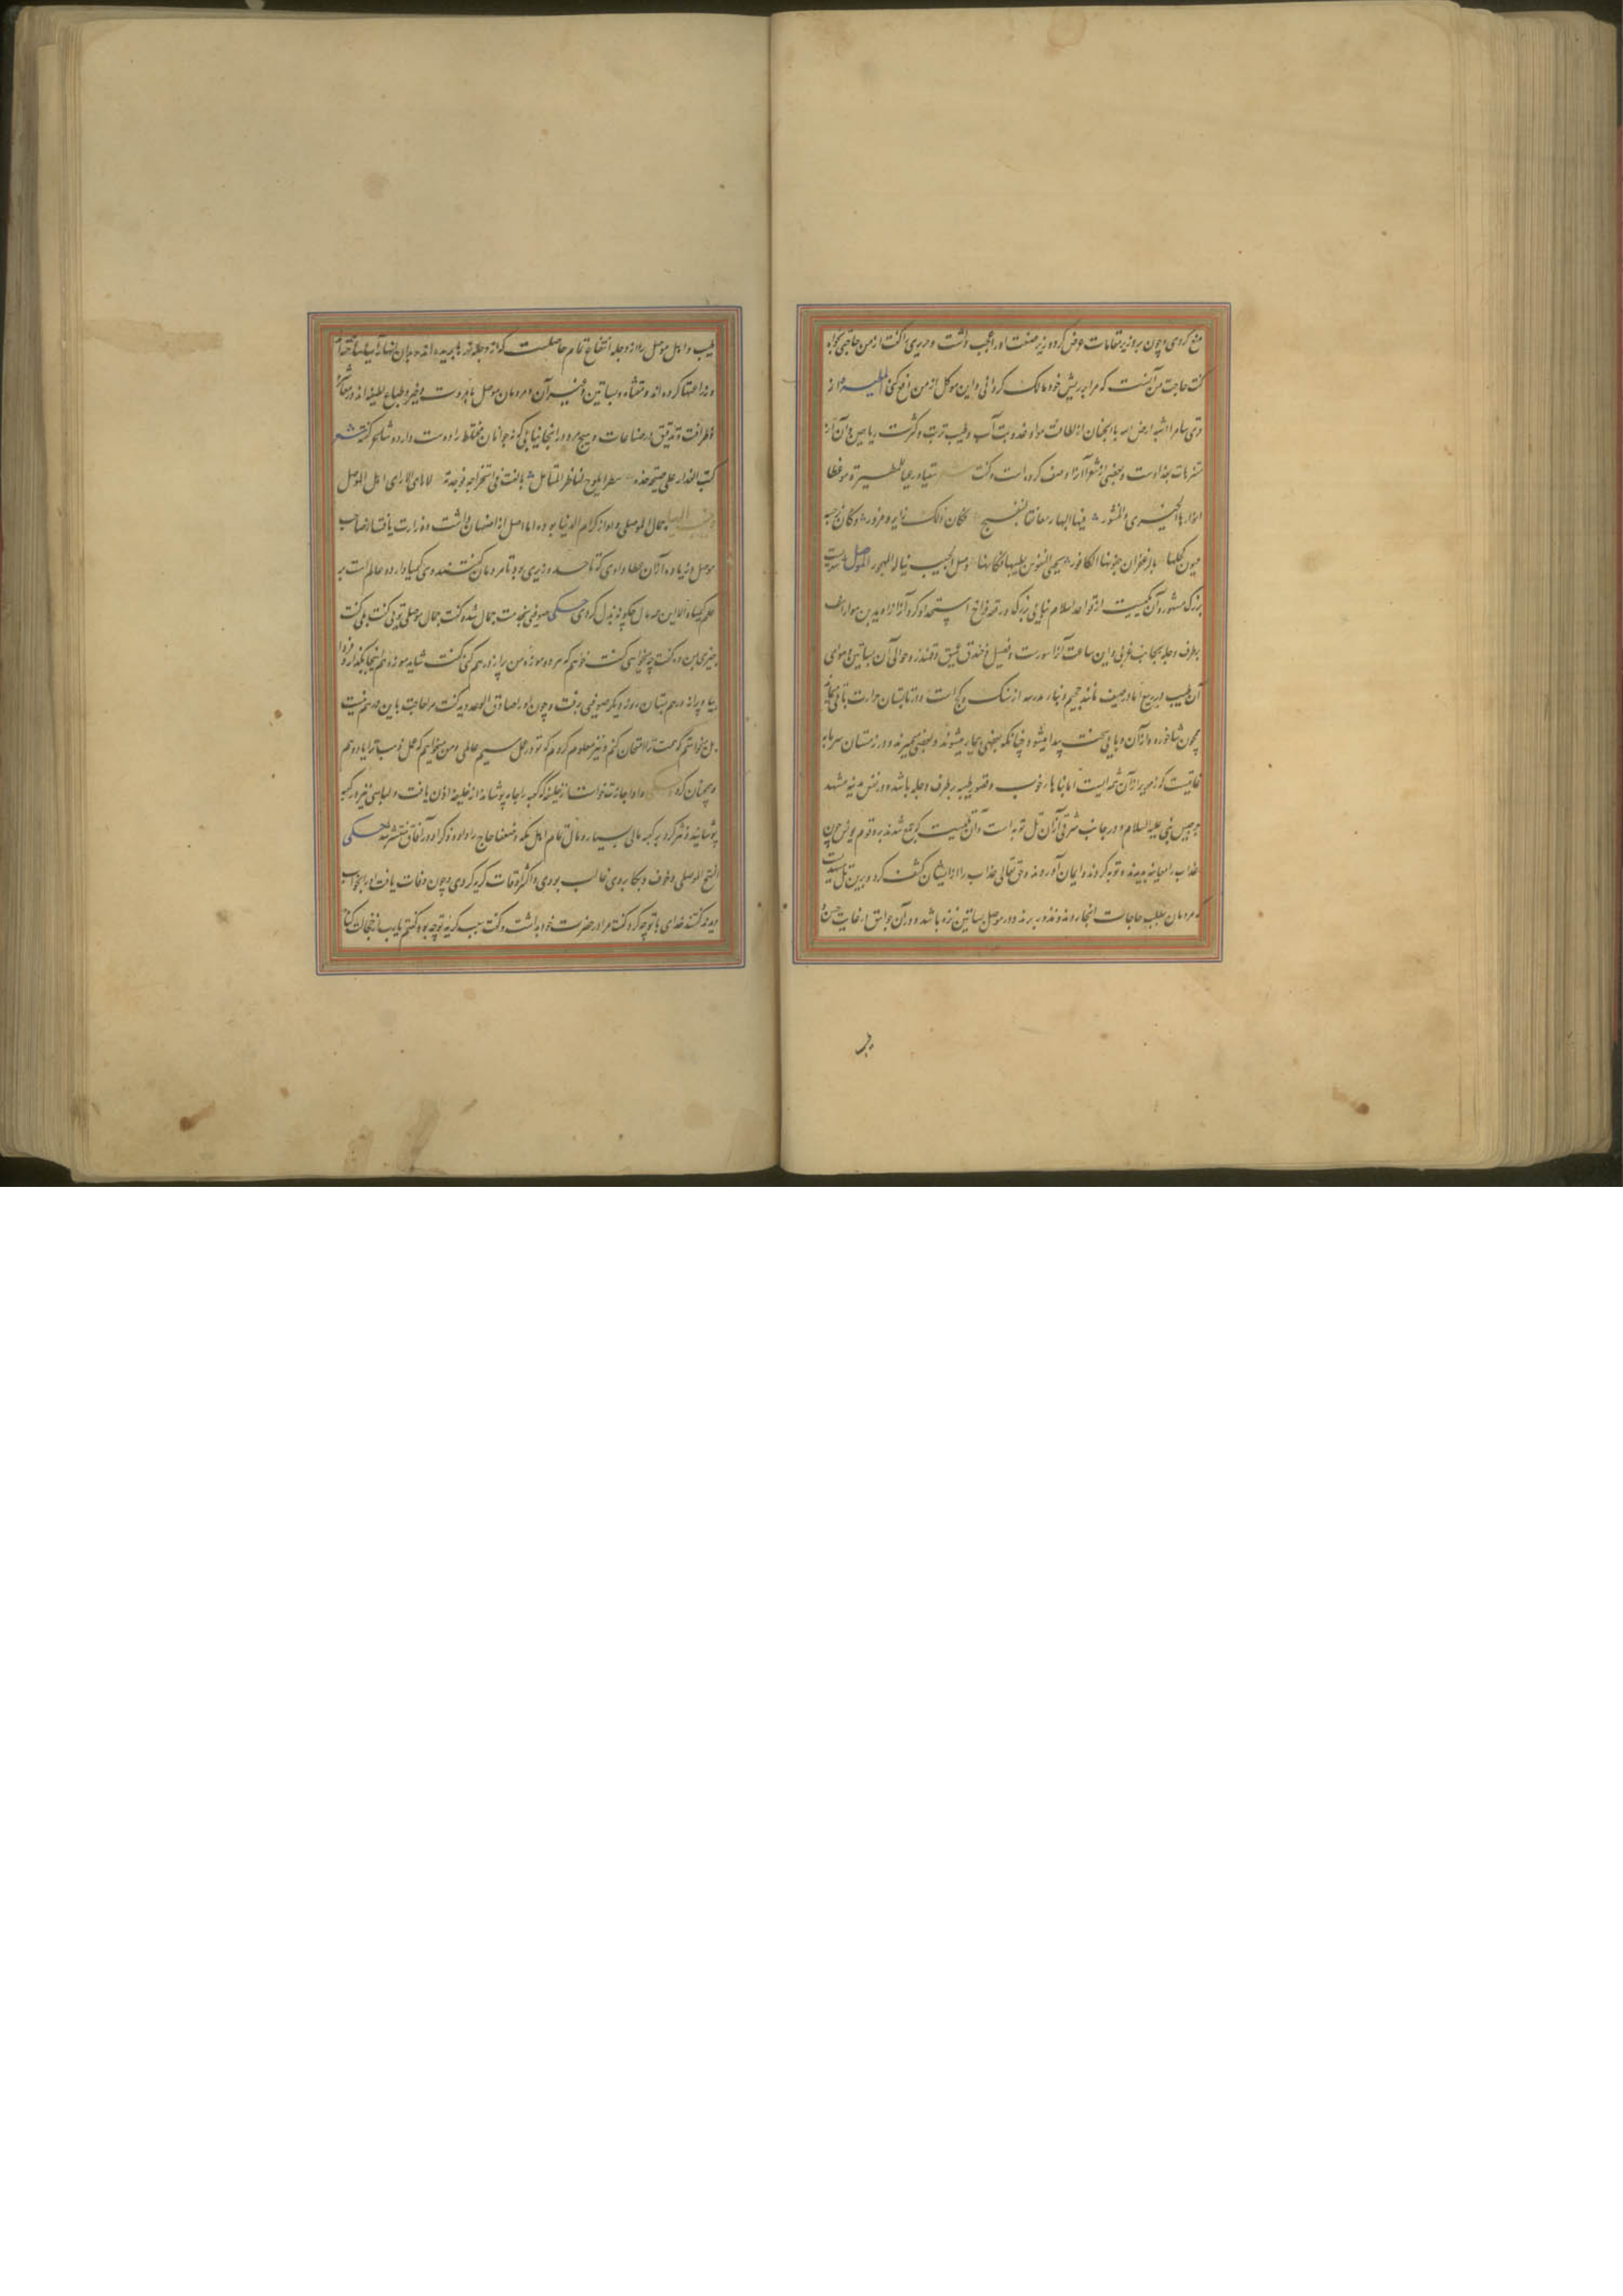 منع کردی و چون بر وزیر مقامات عرض کرد وزیر صنعت او را عجب داشت و حریری را گفت از من حاجتی بخواه
گفت حاجت من آنست که مرا بر ریش خود مالک گردانی و این موکل از من دفع کنی المطیره از
قری سامرا اشبه ارض الله با الجنان از لطافت هوا و عذوبت آب و طیب تربت و کثرت ریاحین و آن از
متنزهات بغداد است و بعضی از شعرا آنرا وصف کرده است و گفت سقیا و رعیا للمطیرة موضعا
انوارها الخیری و المنثور فیها البهار معانقا لبنفسج فکان ذلک زایر و مزور و کان نرجسها
عیون کحلها بالزعفران جفونها الکافور تحیی النفوس بطیبها فکانها وصل الحبیب یناله المهجور الموصل شهریست
بزرگ مشهور و آن یکیست از قواعد اسلام بنایی بزرگ و رقعه فراخ استحداد کرد آنرا راوید بن سوار
بطرف دجله بجانب غربی و این ساعت آنرا سورست و فصیل و خندق عمیق و قهندز و حوالی آن بساتین و هوای
آن طیب در ربیع اما در صیف مانند جحیم و بناء مدرسه از سنک و کج است و در تابستان حرارت
همچون شاخوره و از آن وبایی سخت پیدا میشود چنانکه بعضی بیمار میشوند و بعضی بمیرند و در زمستان سرما به
غایتیست که زمهریر از آن شمه ایست اما بناها خوب و قصور طیبه بر طرف دجله باشد و در نفس مدینه مشهد
جرجیس نبی علیه السلام و در جانب شرقی از آن تل توبه است و آن تلیست که جمع شدند برو قوم یونس چون
عذاب را معاینه بدیدند و توبه کردند و ایمان آوردند و حق تعالی عذاب را از ایشان کشف کرد و برین تل
که مردمان بطلب حاجات آنجا روند و نذور برند و در موصل بساتین نزه باشد و در آن جواسق در غایت حسن
بر
طیب و اهل موصل را از دجله انتفاع تمام حاصلست که از دجله نهرها بریده اند و بدان
و زراعتها کرده اند و متنزهات و بساتین و غیر آن و مردمان موصل با مروت و خیر و طباع لطیفه اند در معاشرت
و ظرافت و تدقیق در صناعات و هیچ مرد در آنجا نیابی که نه جوانان مختلط را دوست دارد و شاعر گفته شعر
کتب العذار علی صحیفة خده سطرا یلوح لناظر المتأمل بالغت فی استخراجه فوجدته لا رای الا رای اهل الموصل
جمال الموصلی و او از کرام الدنیا بوده اما اصل از اصفهان داشت و وزارت یافت از صاحب
موصل و زیاده از آن عطا دادی که تا حد وزیری بود تا مردمان گفتند وی کیمیا دارد و عالم است بر
علم کیمیا و الا این همه مال چگونه بذل کردی حکی صوفی بخدمت جمال شد و گفت جمال موصلی تویی گفت بلی گفت
چیزی بمن ده گفت چه میخواهی گفت خواهم که هر دو موزهٔ من پر از درهم کنی گفت شاید موزه ها اینجا بگذار و فردا
بیا و پر از درهم بستان روز دیگر صوفی برفت و چون او را صادق الوعد دید گفت مرا حاجت باین درهم نیست
بل خواستم که همت ترا امتحان کنم و نیز معلوم کردم که تو در عمل سیم عالمی و من میخواهم که عمل ذهب ترا یاد دهم
و همچنان کرد و او اجازت خواست از خلیفه که کعبه را جامه پوشاند از خلیفه اذن یافت و لباسی نیز در کعبه
پوشانید و نثر کرد بر کعبه مالی بسیار و مال تمام اهل مکه و ضعفا حاج را داد و ذکر او در آفاق منتشر شد حکی
الفتح الموصلی و خوف و بکا بر وی غالب بودی و اکثر اوقات گریه کردی و چون وفات یافت او را بخواب
دیدند گفتند خدای با تو چه کرد گفت مرا در حضرت خود بداشت و گفت سبب گریهٔ تو چه بود گفتم یا رب از خجالت گناه